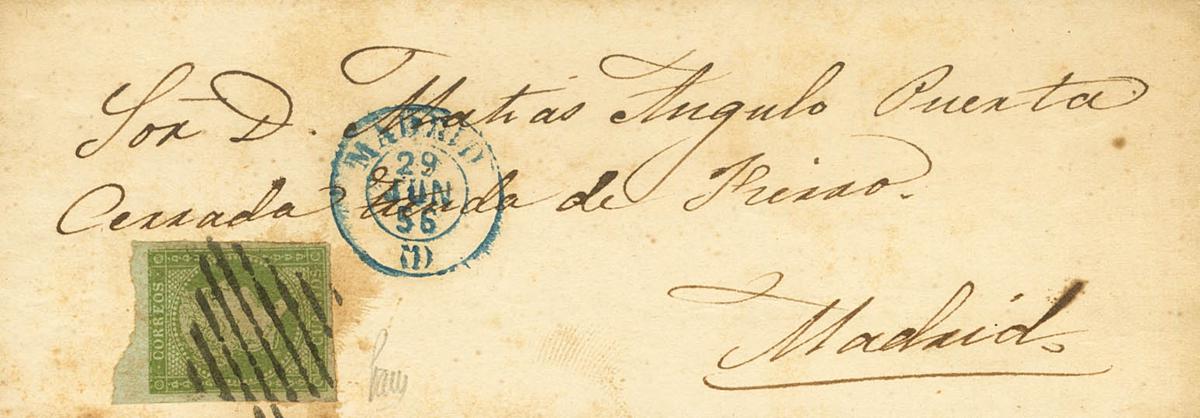 Sor D. Matias Angulo Puerta
Cerrada tienda de Hierro.
Madrid.
MADRID
29
JUN
56
(1)
CORREOS